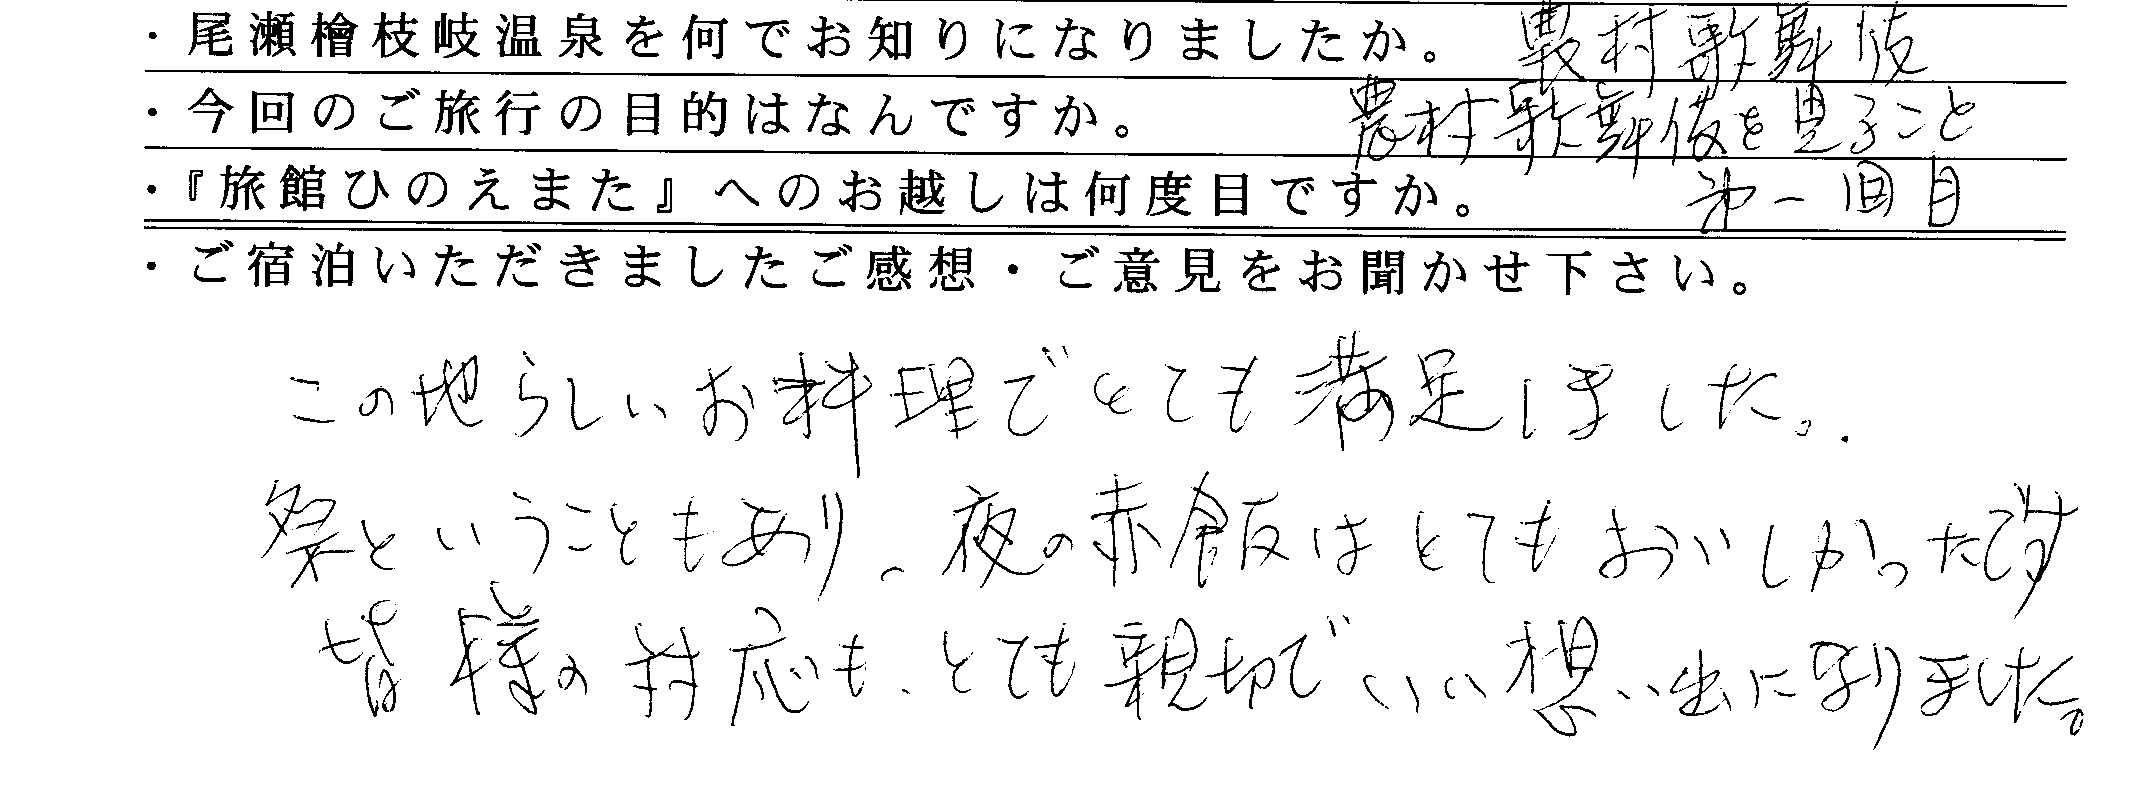 ・尾瀬檜枝岐温泉を何でお知りになりましたか。 農村歌舞伎
・今回のご旅行の目的はなんですか。 農村歌舞伎を見ること
・『旅館ひのえまた』へのお越しは何度目ですか。 第一回目
・ご宿泊いただきましたご感想・ご意見をお聞かせ下さい。
この地らしいお料理でとても満足しました。
祭ということもあり、夜の赤飯はとてもおいしかったです
皆様の対応も、とても親切でいい想い出になりました。